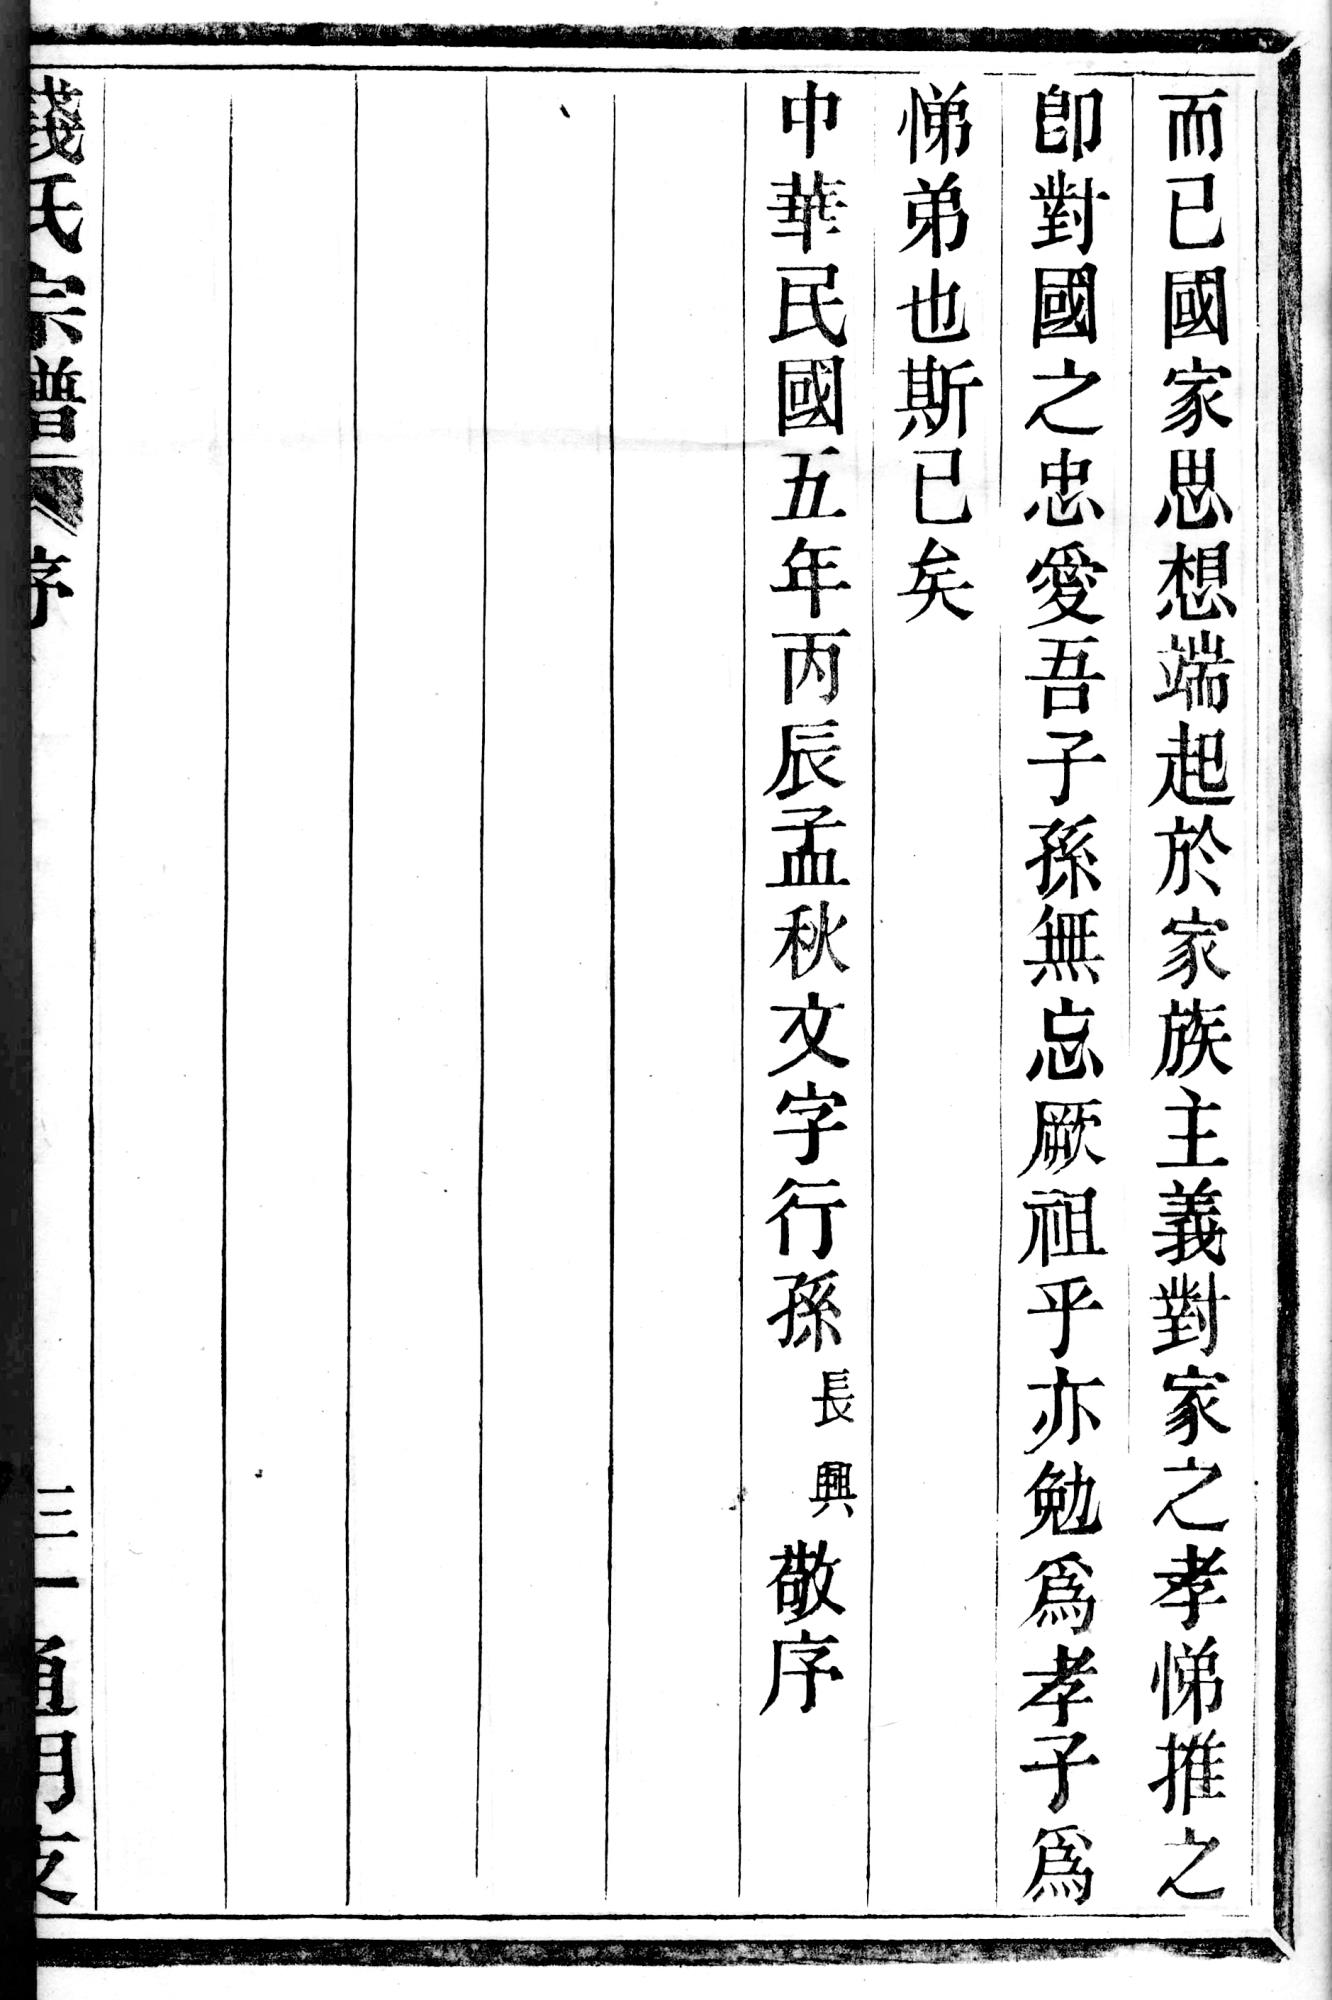 而已國家思想端起於家族主義對家之孝悌推之
卽對國之忠愛吾子孫無忘厥祖乎亦勉爲孝子爲
悌弟也斯已矣
中華民國五年丙辰孟秋文字行孫長興敬序
錢氏宗譜 序 三一 通明支